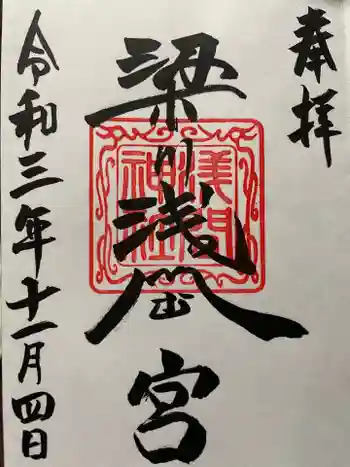 奉拝
梁川浅間宮
淺間
神社
令和三年十一月四日